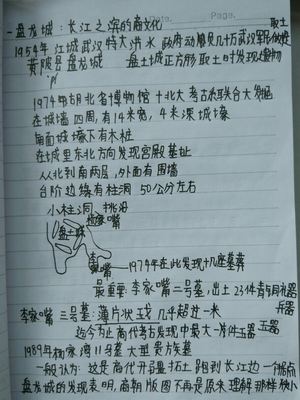 一 盘龙城：长江之滨的商文化
Date. Page.
取土
1954年 江城武汉特大洪水 政府动员几十万武汉军民修堤
黄陂县盘龙城 盘土城正方形 取土时发现遗物
1974年 湖北省博物馆 + 北大考古系联合大发掘
在城墙四周，有14米宽，4米深城壕
南面城壕下有木桩
在城里东北方向发现宫殿基址
从北到南两层，外面有围墙
台阶边缘有柱洞 50公分左右
小柱洞 挑沿
杨家嘴
盘土城
李家嘴 1974年在此发现十几座墓葬
最重要：李家嘴二号墓，出土23件青铜礼器
兵器
李家嘴三号墓：薄片状玉戈 几乎超过一米 玉器
迄今为止商代考古发现中最大一片件玉器
1989年 杨家湾11号墓 大型贵族墓
一般认为：这是商代开疆拓土 跑到长江边一个据点
盘龙城的发现表明，商朝版图不再是原来理解那样狭小